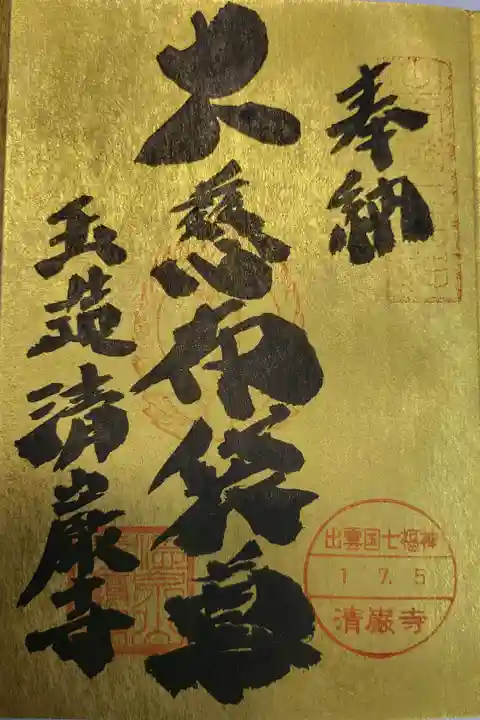 奉納
大慈布袋尊
玉造清巌寺
出雲国七福神
1 7.5
清巌寺